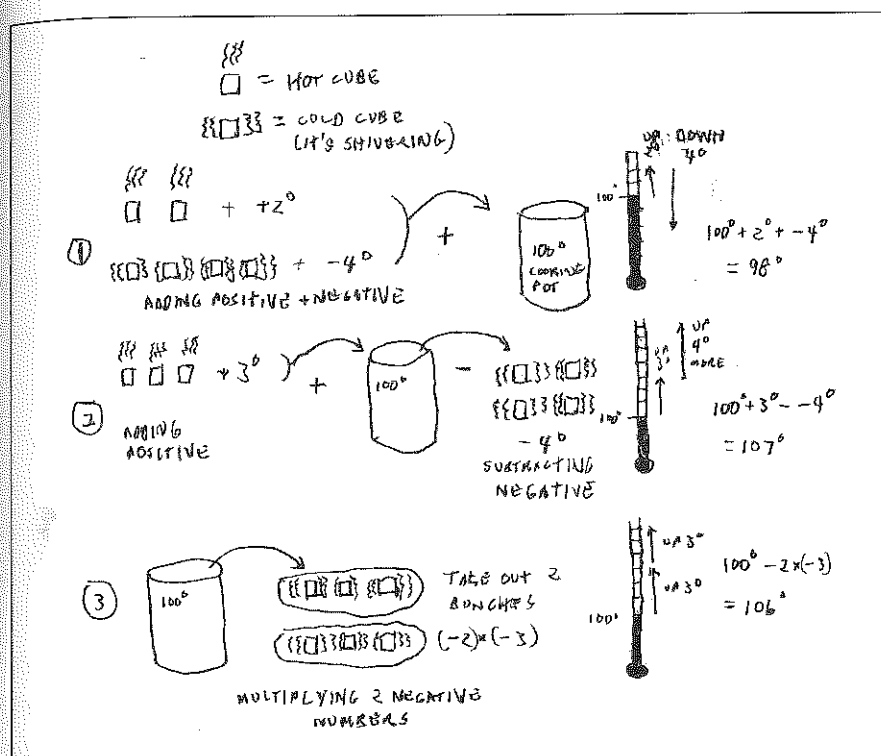 = HOT CUBE
= COLD CUBE
(IT'S SHIVERING)
+ +2°
①
+ -4°
ADDING POSITIVE + NEGATIVE
+
100°
COOKING
POT
UP 2°
DOWN 4°
100°
100° + 2° + -4°
= 98°
②
+ 3°
ADDING
POSITIVE
+
100°
-
-4°
SUBTRACTING
NEGATIVE
100°
UP 3°
UP
4°
MORE
100° + 3° - -4°
= 107°
③
100°
TAKE OUT 2
BUNCHES
(-2)×(-3)
MULTIPLYING 2 NEGATIVE
NUMBERS
UP 3°
UP 3°
100°
100° - 2×(-3)
= 106°